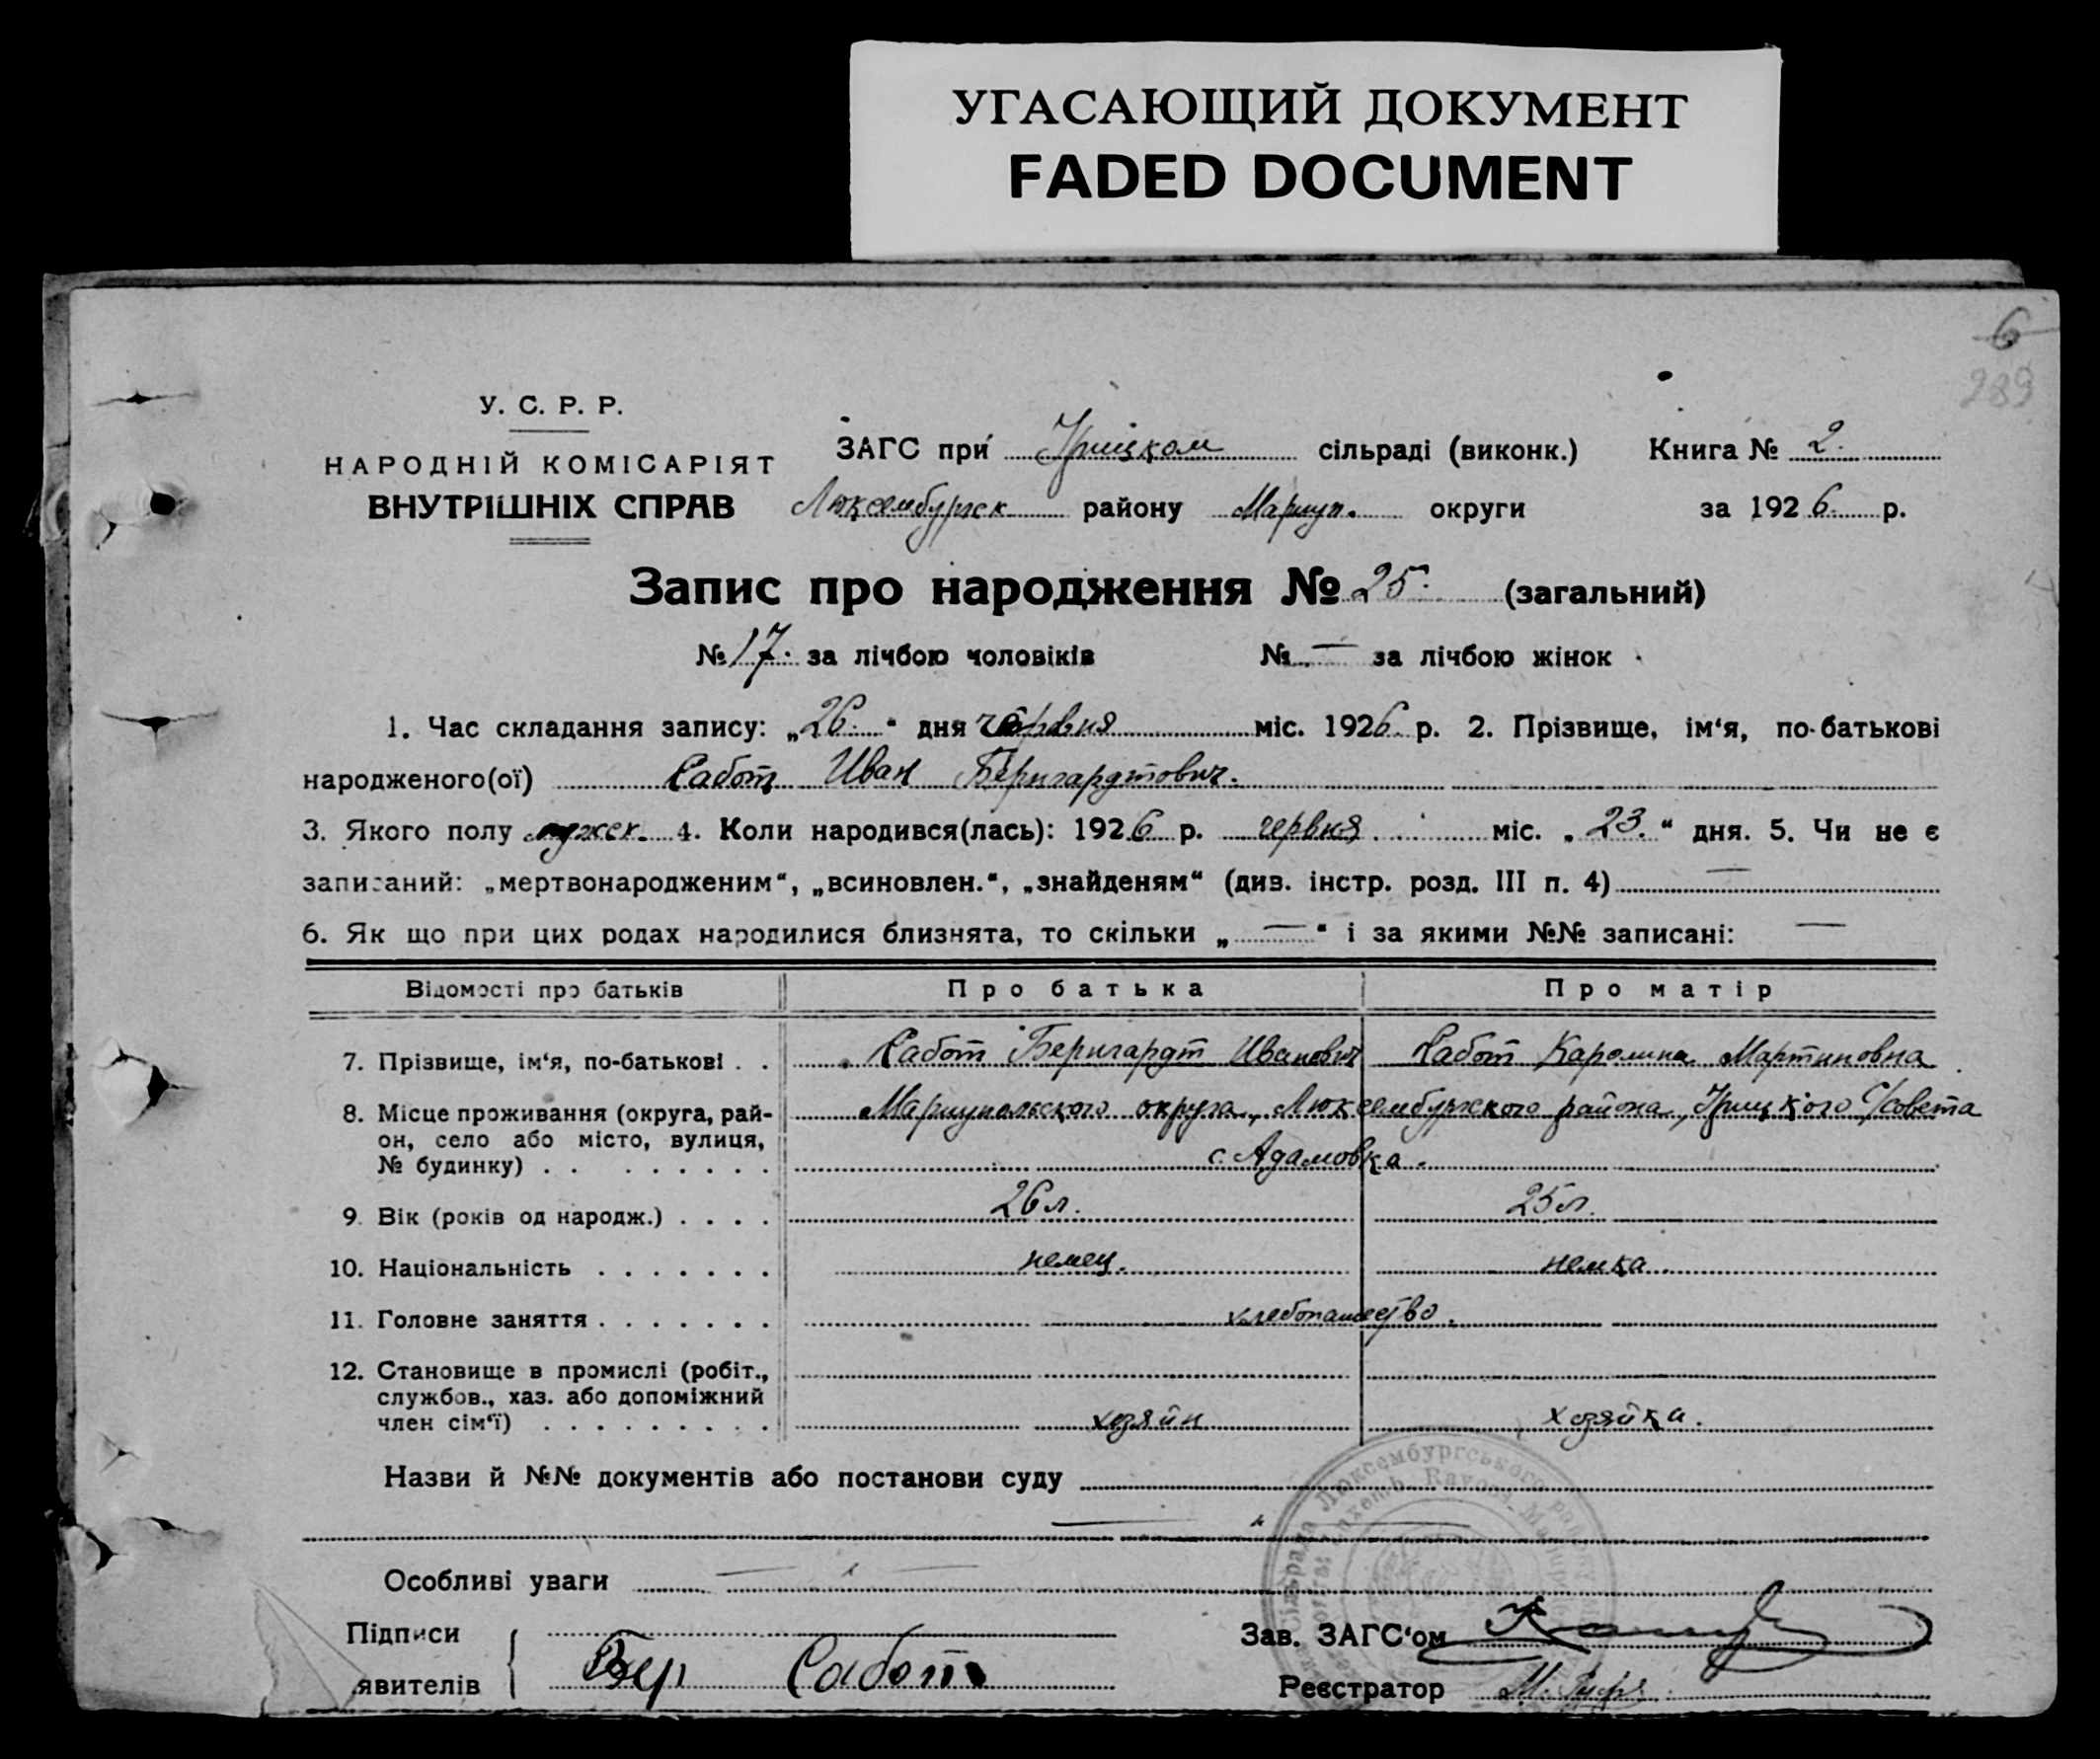 УГАСАЮЩИЙ ДОКУМЕНТ
FADED DOCUMENT
6
289
У. С. Р. Р.
НАРОДНІЙ КОМІСАРІЯТ
ВНУТРІШНІХ СПРАВ
ЗАГС при Урицком сільраді (виконк.) Книга № 2.
Люксембургск району Мариуп. округи за 1926 р.
Запис про народження № 25. (загальний)
№ 17. за лічбою чоловіків № — за лічбою жінок
1. Час складання запису: „26." дня червня міс. 1926 р. 2. Прізвище, ім'я, по-батькові
народженого(ої) Сабот Иван Бернгардтович.
3. Якого полу мужск. 4. Коли народився(лась): 1926 р. червня міс. „23." дня. 5. Чи не є
записаний: „мертвонародженим", „всиновлен.", „знайденям" (див. інстр. розд. III п. 4) —
6. Як що при цих родах народилися близнята, то скільки „—" і за якими №№ записані: —
Відомості про батьків Про батька Про матір
7. Прізвище, ім'я, по-батькові . . Сабот Бернгардт Иванович Сабот Каролина Мартиновна
8. Місце проживання (округа, рай-
он, село або місто, вулиця,
№ будинку) . . Мариупольского округа, Люксембургского района, Урицкого С/совета
с. Адамовка.
9. Вік (років од народж.) . . . . 26 л. 25 л.
10. Національність . . . . . . . немец. немка.
11. Головне заняття . . . . . . . хлебопашество.
12. Становище в промислі (робіт.,
службов., хаз. або допоміжний
член сім'ї) . . . . . . . . . хозяйн хозяйка.
Назви й №№ документів або постанови суду
Особливі уваги
Підписи
явителів Бер Сабот
Зав. ЗАГС'ом
Реєстратор М.
Люксембургського